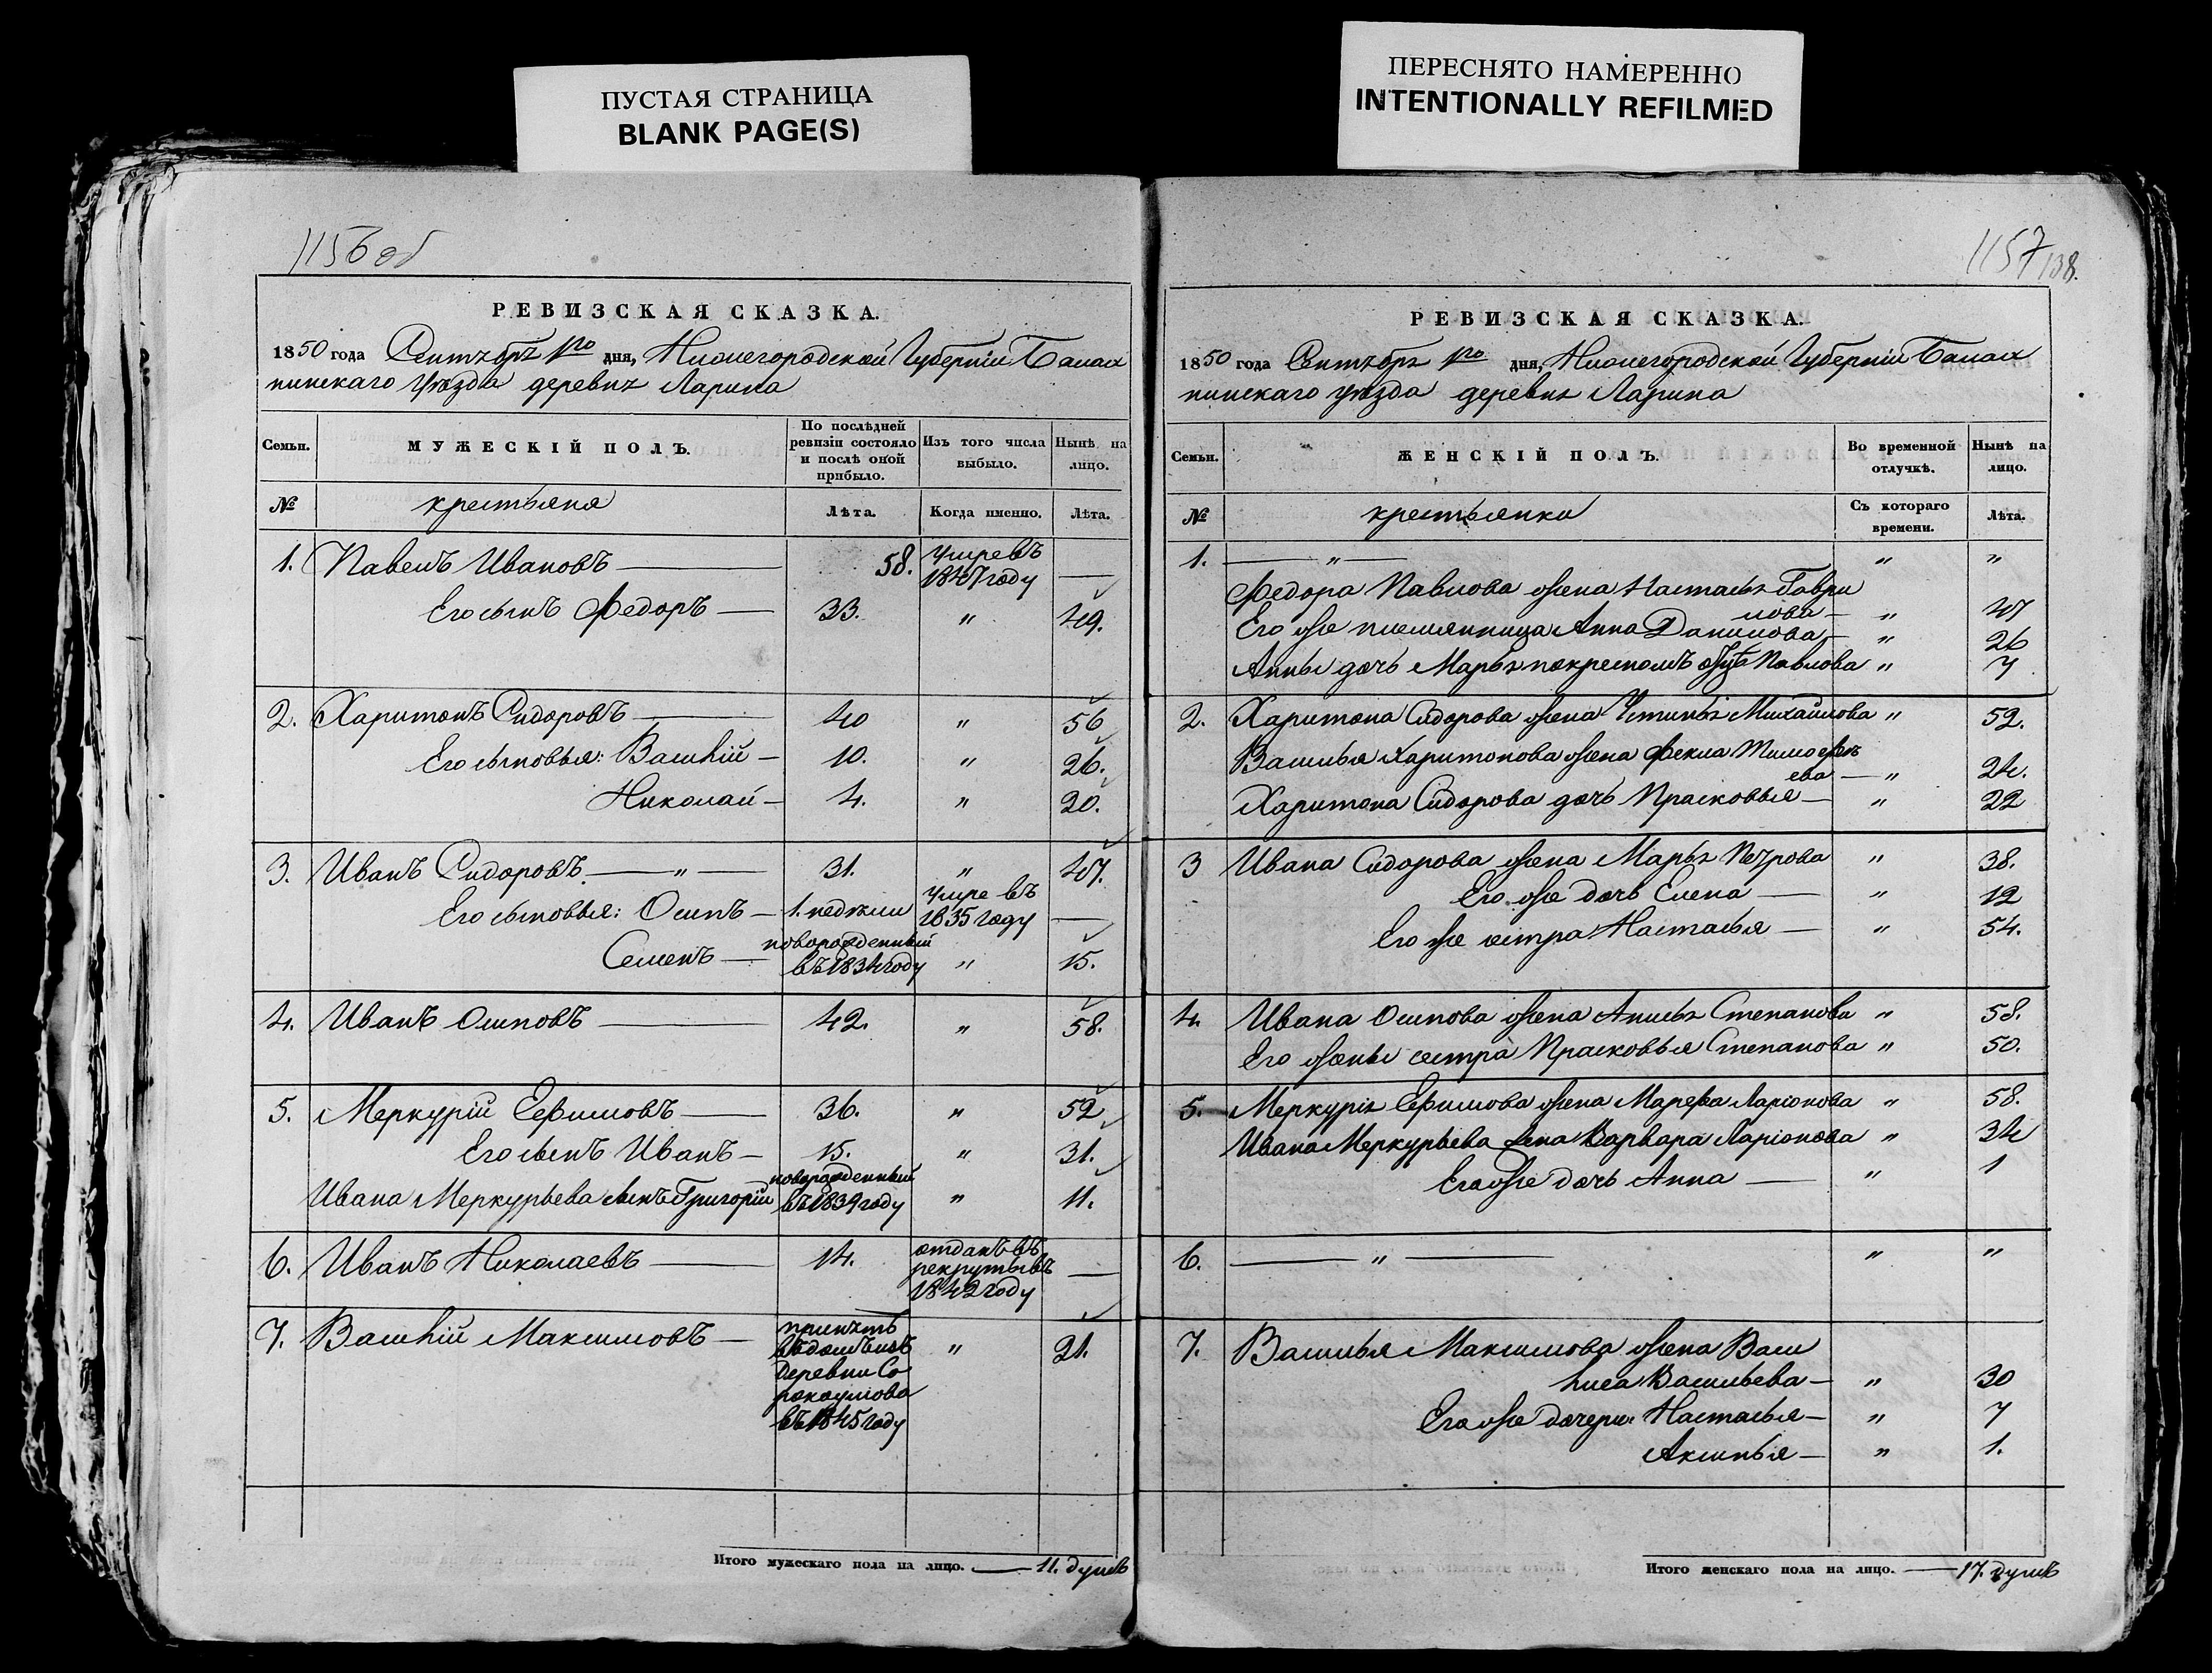 ПУСТАЯ СТРАНИЦА
BLANK PAGE(S)
ПЕРЕСНЯТО НАМЕРЕННО
INTENTIONALLY REFILMED
1156 об
РЕВИЗСКАЯ СКАЗКА.
1850 года Сентября 1го дня, Нижегородской Губерніи Балах
нинскаго уѣзда деревнѣ Ларина
Семьи. МУЖЕСКІЙ ПОЛЪ. По послѣдней ревизіи состояло и послѣ оной прибыло. Изъ того числа выбыло. Нынѣ на лицо.
№ крестьяня Лѣта. Когда именно. Лѣта.
1. Павелъ Ивановъ — 58. умре въ 1847 году —
Его сынъ Федоръ — 33. " 49.
2. Харитонъ Сидоровъ — 40 " 56
Его сыновья: Василій — 10. " 26.
Николай — 4. " 20.
3. Иванъ Сидоровъ — " — 31. " 47.
Его сыновья: Осипъ — 1. недѣли умре въ 1835 году —
Семенъ — новорожденный въ 1834 году " 15.
4. Иванъ Осиповъ — 42. " 58.
5. Меркурій Ефимовъ — 36. " 52
Его сынъ Иванъ — 15. " 31.
Ивана Меркурьева сынъ Григорій новорожденный въ 1839 году " 11.
6. Иванъ Николаевъ — 14. отданъ въ рекруты въ 1842 году —
7. Василій Максимовъ — принятъ въ домъ изъ деревни Со
рокоумова въ 1845 году " 21.
Итого мужескаго пола на лицо. — 11. душъ
1157 138.
РЕВИЗСКАЯ СКАЗКА.
1850 года Сентября 1го дня, Нижегородской Губерніи Балах
нинскаго уѣзда деревнѣ Ларина
Семьи. ЖЕНСКІЙ ПОЛЪ. Во временной отлучкѣ. Нынѣ на лицо.
№ крестьянки Съ котораго времени. Лѣта.
1. — " — " "
Федора Павлова жена Настасья Гаври
лова — " 47
Его же племянница Анна Данилова — " 26
Анны дочь Марья по крестномъ отцѣ Павлова " 7
2. Харитона Сидорова жена Устинья Михайлова " 52.
Василья Харитонова жена Фекла Тимофе
ева — " 24.
Харитона Сидорова дочь Прасковья — " 22
3 Ивана Сидорова жена Марья Петрова " 38.
Его же дочь Елена — " 12
Его же сестра Настасья — " 54.
4. Ивана Осипова жена Анисья Степанова " 58.
Его жены сестра Прасковья Степанова " 50.
5. Меркурія Ефимова жена Марефа Ларіонова " 58.
Ивана Меркурьева жена Варвара Ларіонова " 34
Его же дочь Анна — " 1
6. — " — " "
7. Василья Максимова жена Васи
лиса Васильева — " 30
Его же дочери: Настасья — " 7
Аксинья — " 1.
Итого женскаго пола на лицо. — 17. душъ